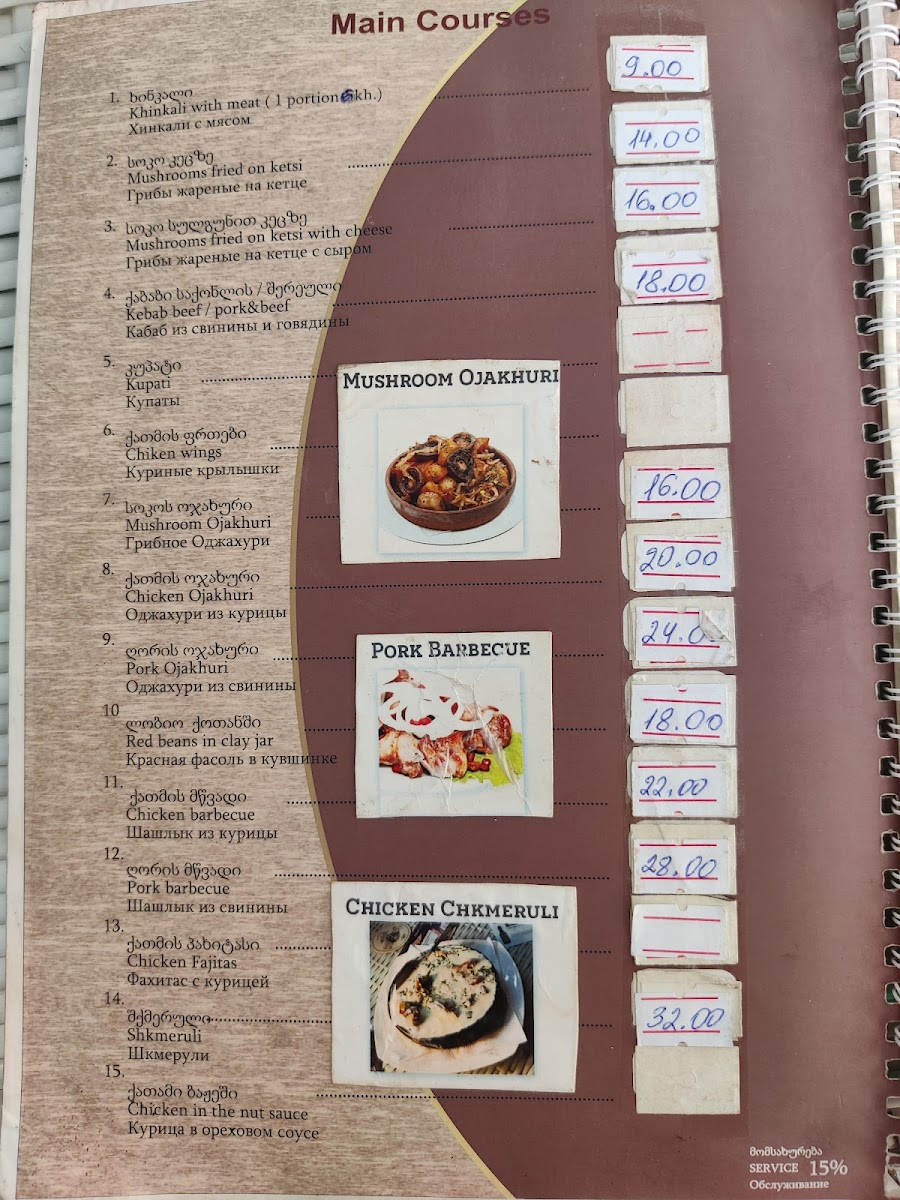 Main Courses
1. ხინკალი 9.00
Khinkali with meat ( 1 portion 5 kh.)
Хинкали с мясом
2. სოკო კეცზე 14.00
Mushrooms fried on ketsi
Грибы жареные на кетце
3. სოკო სულგუნით კეცზე 16.00
Mushrooms fried on ketsi with cheese
Грибы жареные на кетце с сыром
4. ქაბაბი საქონლის / შერეული 18.00
Kebab beef / pork&beef
Кабаб из свинины и говядины
5. კუპატი
Kupati
Купаты
6. ქათმის ფრთები
Chiken wings
Куриные крылышки
7. სოკოს ოჯახური 16.00
Mushroom Ojakhuri
Грибное Оджахури
8. ქათმის ოჯახური 20.00
Chicken Ojakhuri
Оджахури из курицы
9. ღორის ოჯახური 24.00
Pork Ojakhuri
Оджахури из свинины
10 ლობიო ქოთანში 18.00
Red beans in clay jar
Красная фасоль в кувшинке
11. ქათმის მწვადი 22.00
Chicken barbecue
Шашлык из курицы
12. ღორის მწვადი 28.00
Pork barbecue
Шашлык из свинины
13. ქათმის პახიტასი
Chicken Fajitas
Фахитас с курицей
14. შქმერული 32.00
Shkmeruli
Шкмерули
15. ქათამი ბაჟეში
Chicken in the nut sauce
Курица в ореховом соусе
MUSHROOM OJAKHURI
PORK BARBECUE
CHICKEN CHKMERULI
მომსახურება
SERVICE 15%
Обслуживание